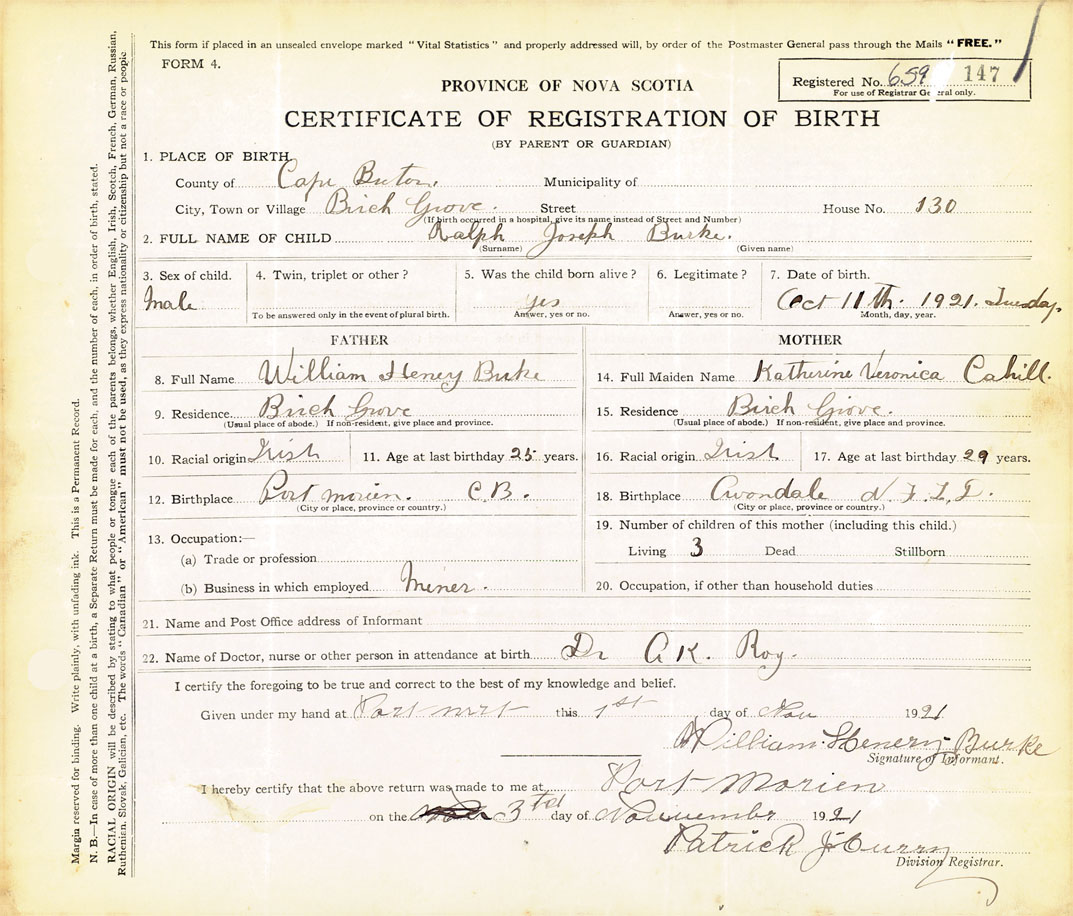 This form if placed in an unsealed envelope marked "Vital Statistics" and properly addressed will, by order of the Postmaster General pass through the Mails "FREE."
FORM 4.
Registered No. 659 147
For use of Registrar General only.
PROVINCE OF NOVA SCOTIA
CERTIFICATE OF REGISTRATION OF BIRTH
(BY PARENT OR GUARDIAN)
1. PLACE OF BIRTH.
County of Cape Breton. Municipality of
City, Town or Village Birch Grove. Street House No. 130
(If birth occurred in a hospital, give its name instead of Street and Number)
2. FULL NAME OF CHILD Ralph Joseph Burke.
(Surname) (Given name)
3. Sex of child. 4. Twin, triplet or other? 5. Was the child born alive? 6. Legitimate? 7. Date of birth.
Male yes Oct 11th. 1921. Tuesday.
To be answered only in the event of plural birth. Answer, yes or no. Answer, yes or no. Month, day, year.
FATHER MOTHER
8. Full Name William Henery Burke 14. Full Maiden Name Katherine Veronica Cahill.
9. Residence Birch Grove 15. Residence Birch Grove.
(Usual place of abode.) If non-resident, give place and province. (Usual place of abode.) If non-resident, give place and province.
10. Racial origin Irish 11. Age at last birthday 25 years. 16. Racial origin Irish 17. Age at last birthday 29 years.
12. Birthplace Port Morien. C.B. 18. Birthplace Avondale N.F.L.D.
(City or place, province or country.) (City or place, province or country.)
13. Occupation:— 19. Number of children of this mother (including this child.)
(a) Trade or profession Living 3 Dead Stillborn
(b) Business in which employed Miner. 20. Occupation, if other than household duties
21. Name and Post Office address of Informant
22. Name of Doctor, nurse or other person in attendance at birth Dr A K. Roy.
I certify the foregoing to be true and correct to the best of my knowledge and belief.
Given under my hand at Port this 1st day of Nov 1921
William Henery Burke
Signature of Informant.
I hereby certify that the above return was made to me at Port Morien
on the 3rd day of November 1921
Patrick J Curry
Division Registrar.
Margin reserved for binding. Write plainly, with unfading ink. This is a Permanent Record.
N. B.—In case of more than one child at a birth, a Separate Return must be made for each, and the number of each, in order of birth, stated.
RACIAL ORIGIN will be described by stating to what people or tongue each of the parents belongs, whether English, Irish, Scotch, French, German, Russian,
Ruthenian, Slovak, Galician, etc. The words "Canadian" or "American" must not be used, as they express nationality or citizenship but not a race or people.